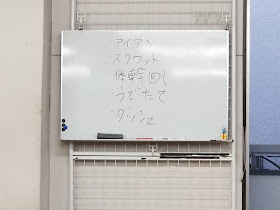 ・アイアン
・スクワット
・体幹回し
・うでたて
・ダッシュ